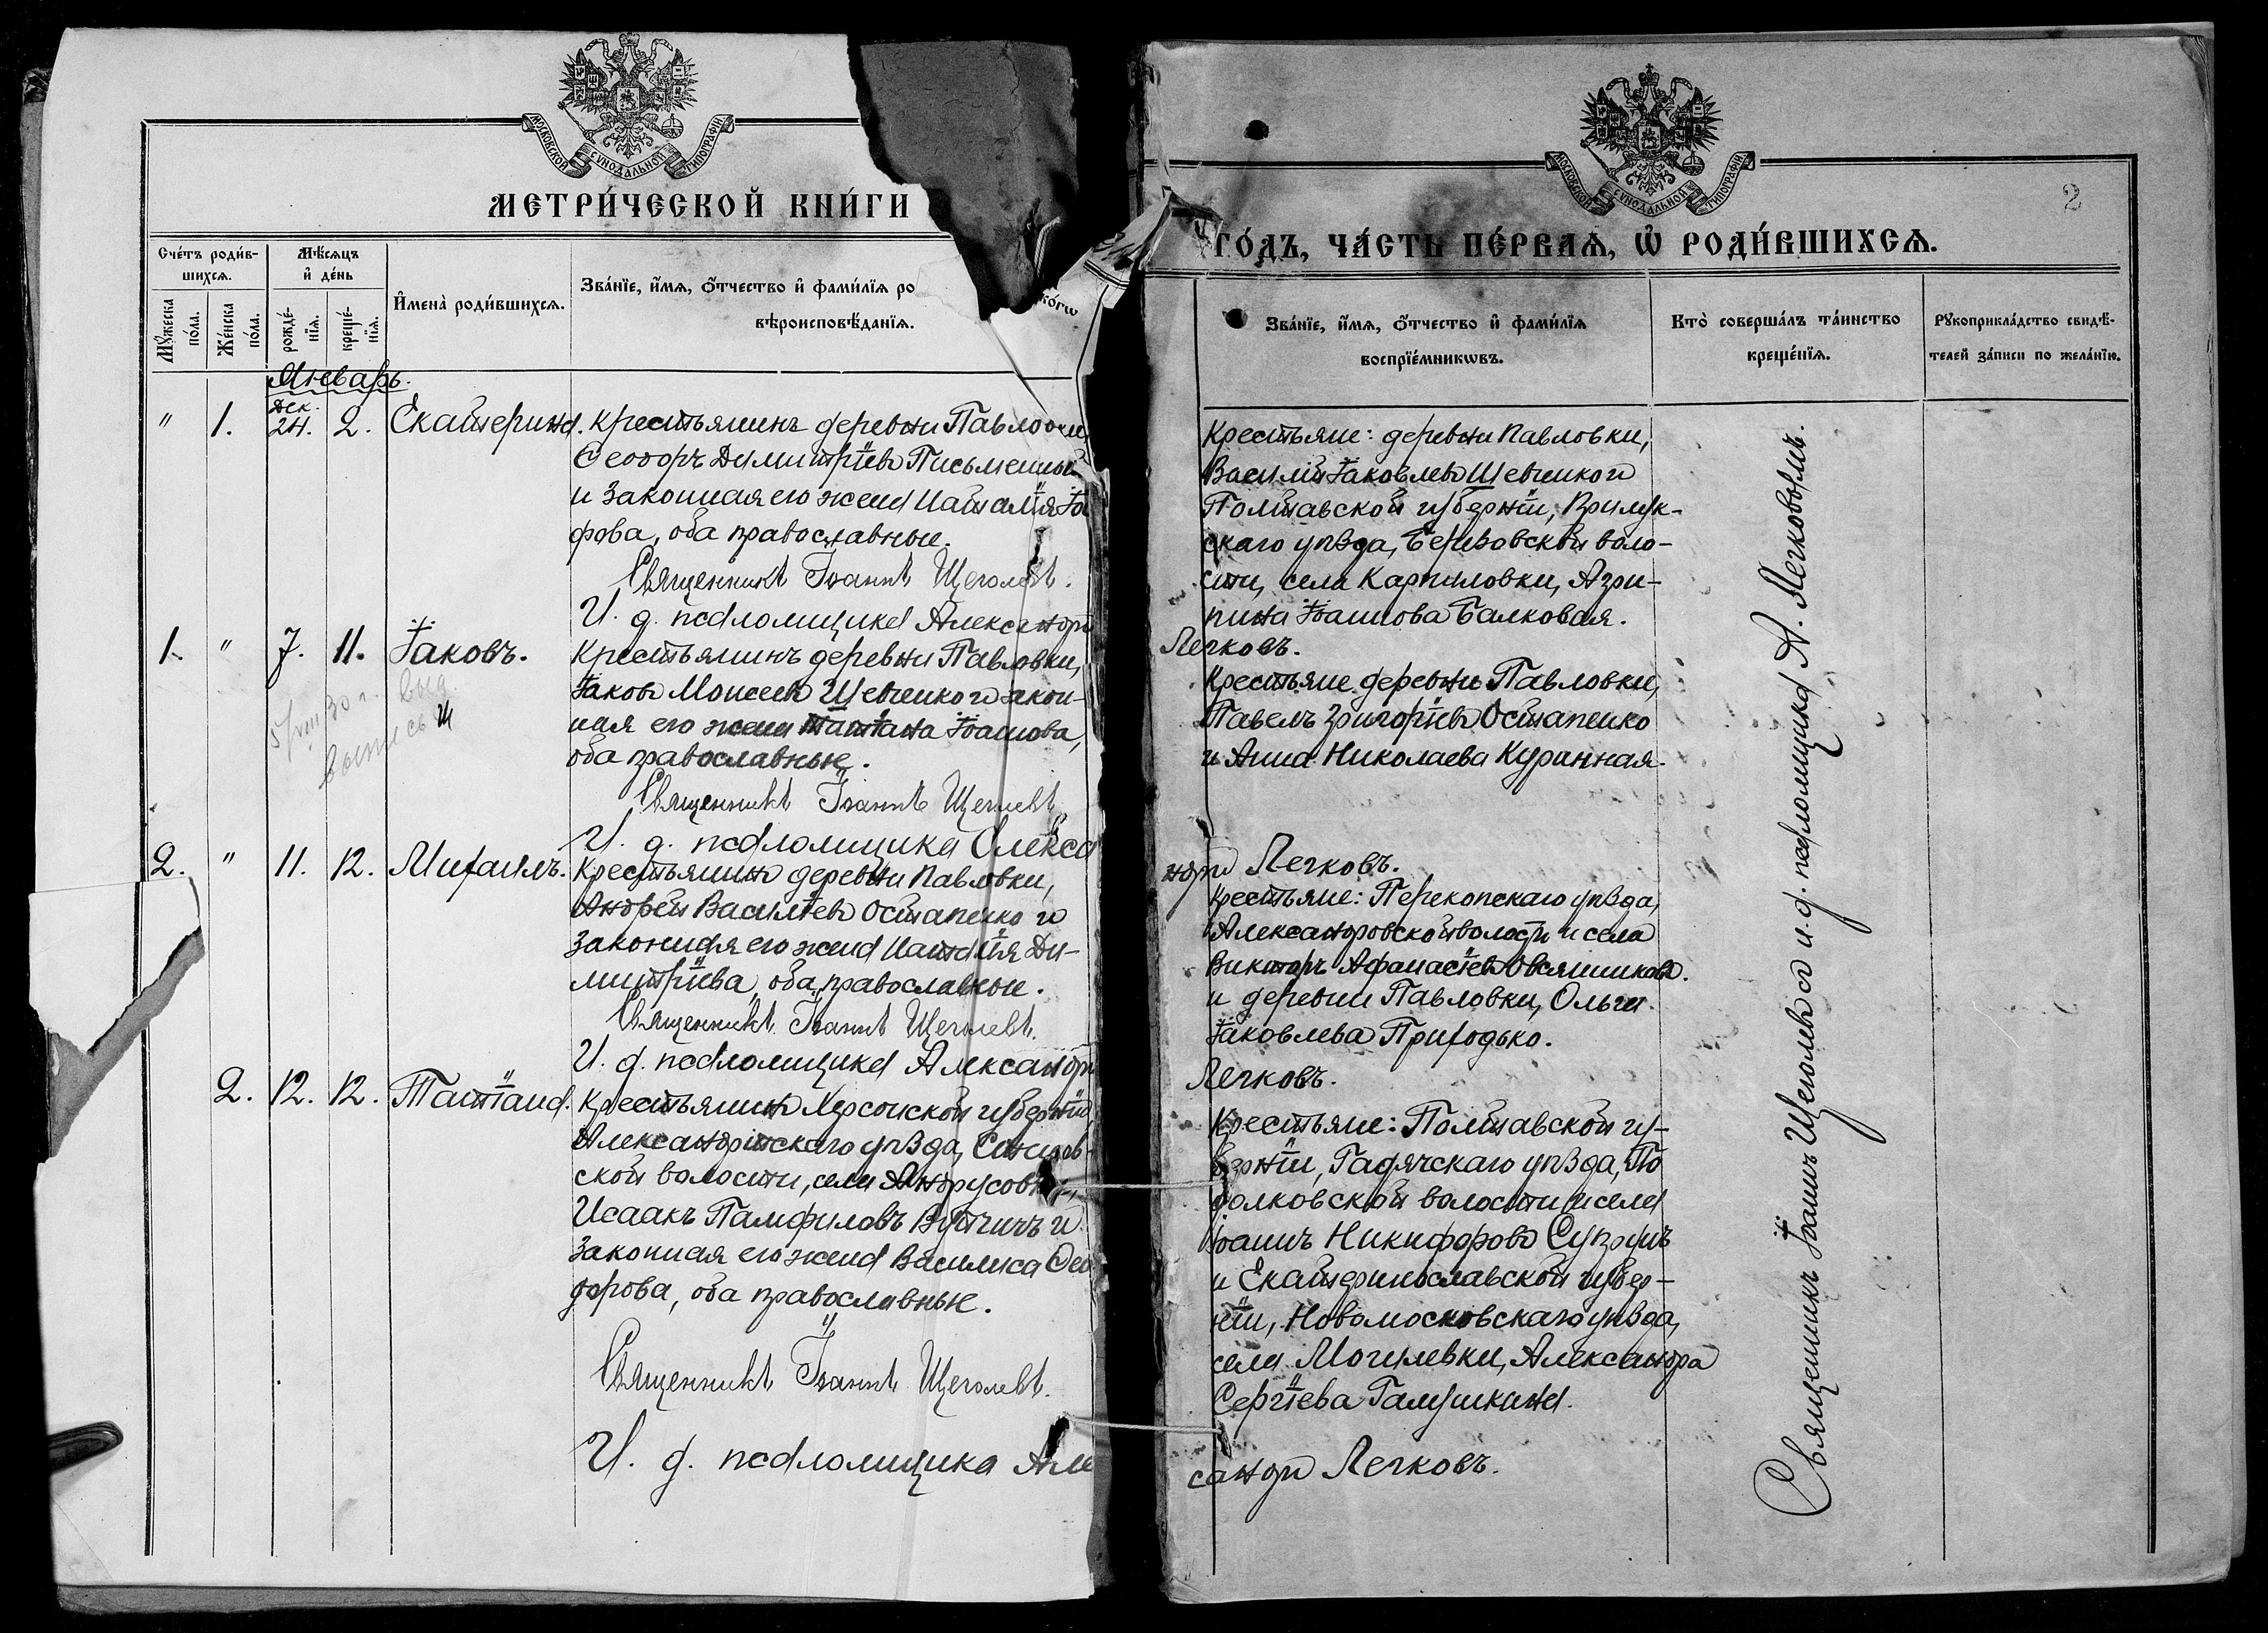 МОСКОВСКОЙ СѴНОДАЛЬНОЙ ТИПОГРАФІИ
МЕТРИ́ЧЕСКОЙ КНИ́ГИ
Сче́тъ роди́в-
шихсѧ.
Мѣ́сѧцъ
и҆ де́нь
Мꙋ́жеска
по́ла.
Же́нска
по́ла.
рожде́-
нїѧ.
креще́-
нїѧ.
И҆мена̀ роди́вшихсѧ.
Зва́нїе, и҆́мѧ, ѻ҆́тчество и҆ фами́лїѧ ро
ко́гѡ
вѣроисповѣ́данїѧ.
Январь.
" 1. Дек. 24. 2. Екатерина.
Крестьянинъ деревни Павловки,
Ѳеодоръ Димитріевъ Письменный
и законная его жена Наталія
фова, оба православные.
Священникъ Іоаннъ Щеголевъ.
И. д. псаломщика Александръ
1. " 7. 11. Іаковъ.
Крестьянинъ деревни Павловки,
Іаковъ Моисеевъ Шевченко и закон-
ная его жена Татіана Іоаннова,
оба православные.
Священникъ Іоаннъ Щеголевъ
И. д. псаломщика Алекса
5/VIII 30 г. выд.
выпись
2. " 11. 12. Михаилъ.
Крестьянинъ деревни Павловки,
Андрей Василіевъ Остапенко и
законная его жена Наталія Ди-
митріева, оба православные.
Священникъ Іоаннъ Щеголевъ.
И. д. псаломщика Александръ
2. 12. 12. Татіана.
Крестьянинъ Херсонской губерніи,
Александрійскаго уѣзда,
ской волости, села Андрусовки,
Исаакъ Памфиловъ и
законная его жена Василиса Ѳео
дорова, оба православные.
Священникъ Іоаннъ Щеголевъ.
И. д. псаломщика Але
МОСКОВСКОЙ СѴНОДАЛЬНОЙ ТИПОГРАФІИ
2
ГО́ДЪ, ЧА́СТЬ ПЕ́РВАѦ, Ѡ҆ РОДИ́ВШИХСѦ.
Зва́нїе, и҆́мѧ, ѻ҆́тчество и҆ фами́лїѧ
воспрїе́мникѡвъ.
Кто̀ соверша́лъ та́инство
креще́нїѧ.
Рꙋкоприкла́дство свидѣ́-
телей за́писи по жела́нїю.
Крестьяне: деревни Павловки,
Василій Іаковлевъ Шевченко и
Полтавской губерніи, Прилук-
скаго уѣзда, Березовской воло-
сти, села Карпиловки, Агри-
пина Іоаннова Балковая.
Легковъ.
Крестьяне деревни Павловки,
Павелъ Григоріевъ Остапенко
и Анна Николаева Куранная.
ндръ Легковъ.
Крестьяне: Перекопскаго уѣзда,
Александровской волости и села
Викторъ Афанасіевъ Овсянниковъ.
и деревни Павловки, Ольга
Іаковлева Приходько.
Легковъ.
Крестьяне: Полтавской гу-
берніи, Гадячскаго уѣзда,
долковской волости и села
Іоаннъ Никифоровъ Супрунъ
и Екатеринославской губер-
ніи, Новомосковскаго уѣзда,
села Могилевки, Александра
Сергіева Галушкина.
сандръ Легковъ.
Священникъ Іоаннъ Щеголевъ и и. д. псаломщика А. Легковымъ.